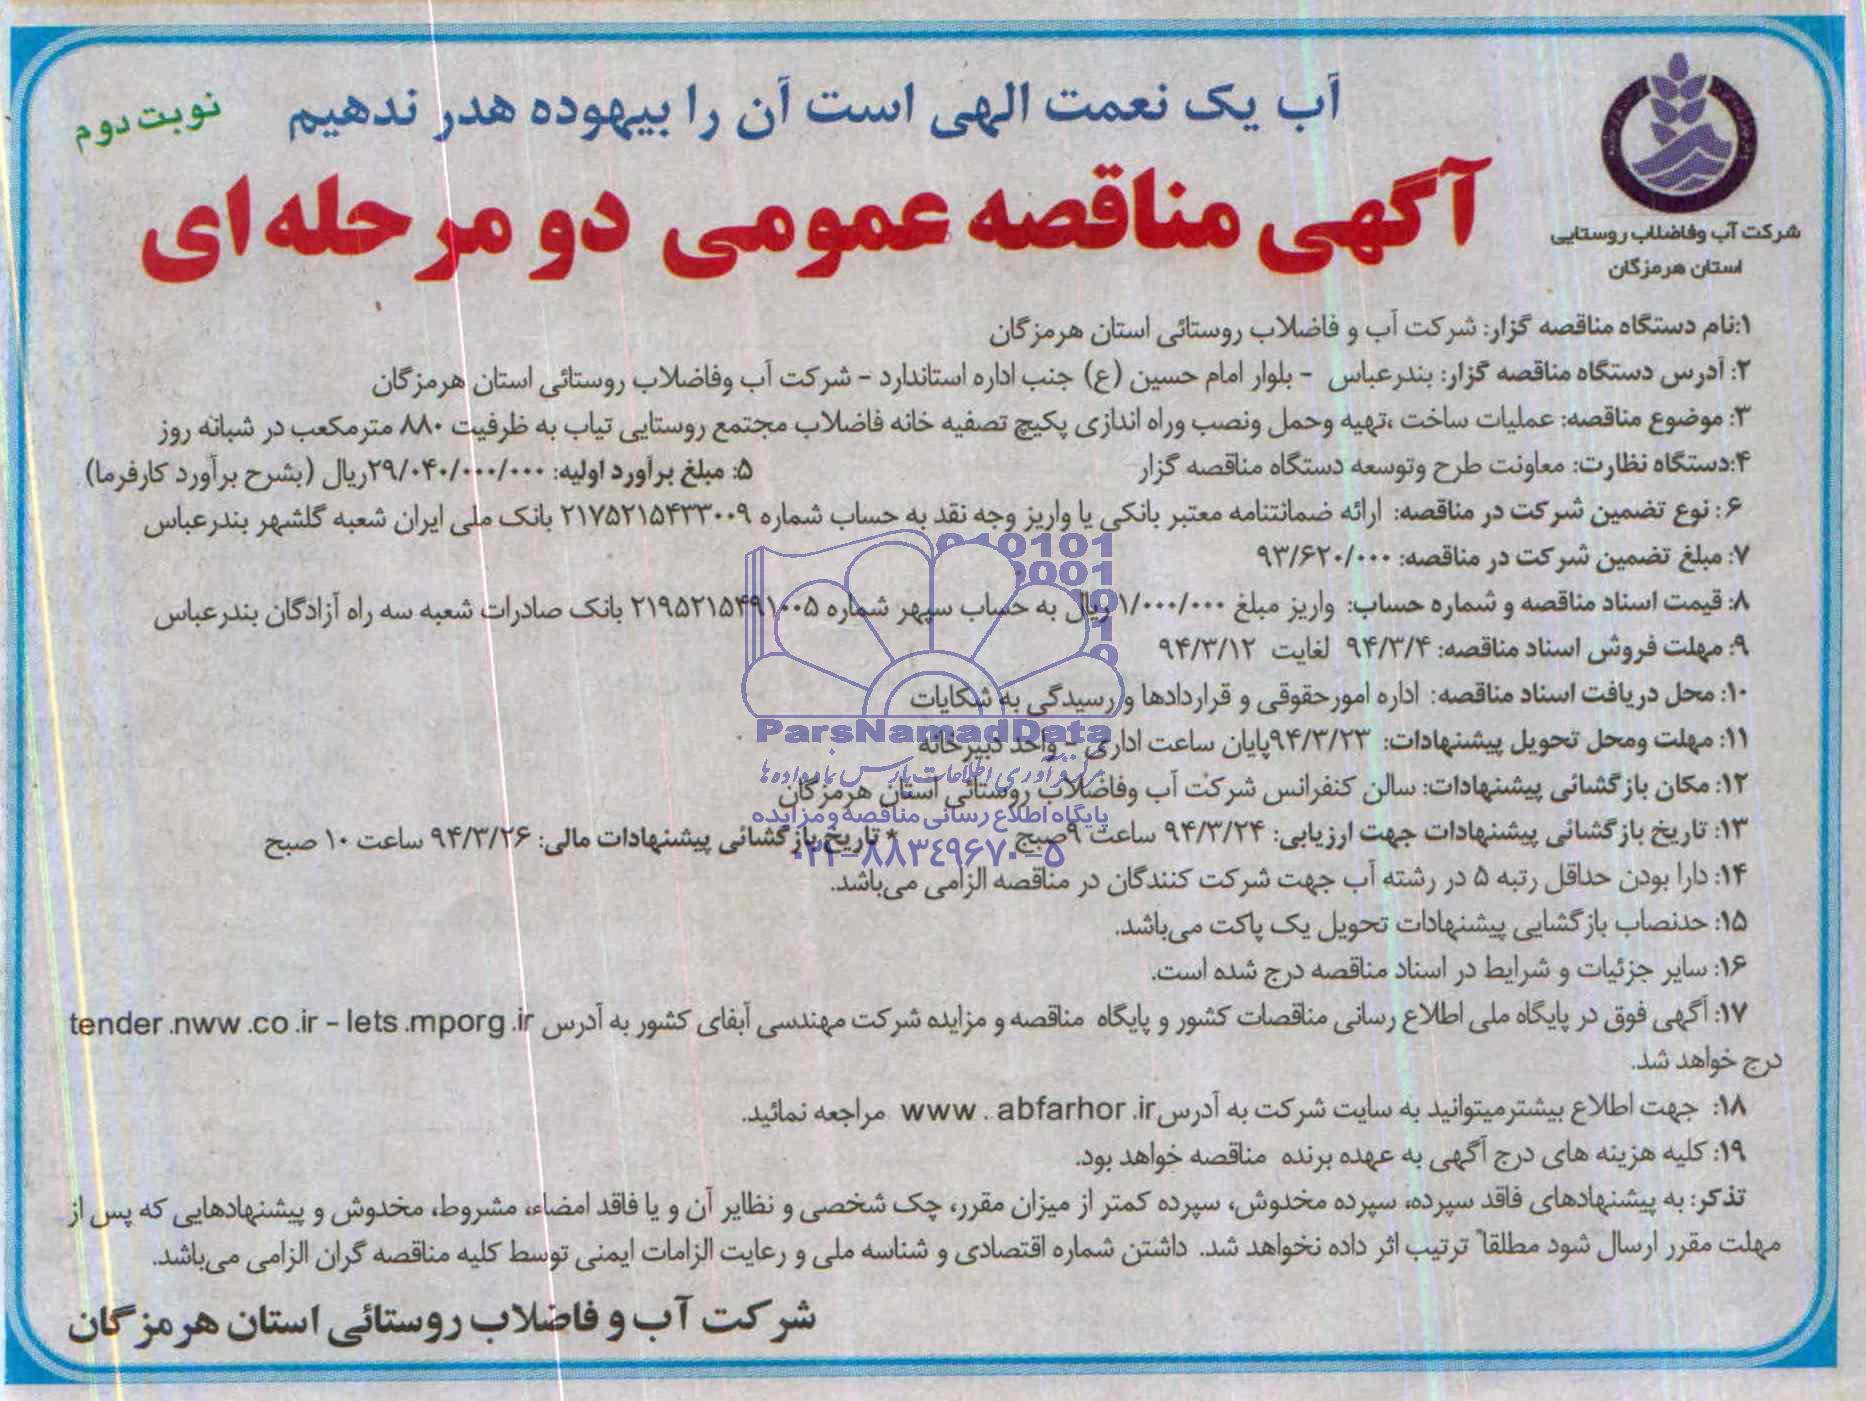 آب یک نعمت الهی است آن را بیهوده هدر ندهیم
نوبت دوم
آگهی مناقصه عمومی دو مرحله ای
شرکت آب وفاضلاب روستایی
استان هرمزگان
۱:نام دستگاه مناقصه گزار: شرکت آب و فاضلاب روستائی استان هرمزگان
۲: آدرس دستگاه مناقصه گزار: بندرعباس - بلوار امام حسین (ع) جنب اداره استاندارد - شرکت آب وفاضلاب روستائی استان هرمزگان
۳: موضوع مناقصه: عملیات ساخت ،تهیه وحمل ونصب وراه اندازی پکیج تصفیه خانه فاضلاب مجتمع روستایی تیاب به ظرفیت ۸۸۰ مترمکعب در شبانه روز
۴:دستگاه نظارت: معاونت طرح وتوسعه دستگاه مناقصه گزار
۵: مبلغ برآورد اولیه: ۲۹/۰۴۰/۰۰۰/۰۰۰ریال (بشرح برآورد کارفرما)
۶: نوع تضمین شرکت در مناقصه: ارائه ضمانتنامه معتبر بانکی یا واریز وجه نقد به حساب شماره ۲۱۷۵۲۱۵۴۳۳۰۰۹ بانک ملی ایران شعبه گلشهر بندرعباس
۷: مبلغ تضمین شرکت در مناقصه: ۹۳/۶۲۰/۰۰۰
۸: قیمت اسناد مناقصه و شماره حساب: واریز مبلغ ۱/۰۰۰/۰۰۰ ریال به حساب سپهر شماره ۲۱۹۵۲۱۵۴۹۱۰۰۵ بانک صادرات شعبه سه راه آزادگان بندرعباس
۹: مهلت فروش اسناد مناقصه: ۹۴/۳/۴ لغایت ۹۴/۳/۱۲
۱۰: محل دریافت اسناد مناقصه: اداره امورحقوقی و قراردادها و رسیدگی به شکایات
۱۱: مهلت ومحل تحویل پیشنهادات: ۹۴/۳/۲۳پایان ساعت اداری - واحد دبیرخانه
۱۲: مکان بازگشائی پیشنهادات: سالن کنفرانس شرکت آب وفاضلاب روستائی استان هرمزگان
۱۳: تاریخ بازگشائی پیشنهادات جهت ارزیابی: ۹۴/۳/۲۴ ساعت ۹صبح * تاریخ بازگشائی پیشنهادات مالی: ۹۴/۳/۲۶ ساعت ۱۰ صبح
۱۴: دارا بودن حداقل رتبه ۵ در رشته آب جهت شرکت کنندگان در مناقصه الزامی می‌باشد.
۱۵: حدنصاب بازگشایی پیشنهادات تحویل یک پاکت می‌باشد.
۱۶: سایر جزئیات و شرایط در اسناد مناقصه درج شده است.
۱۷: آگهی فوق در پایگاه ملی اطلاع رسانی مناقصات کشور و پایگاه مناقصه و مزایده شرکت مهندسی آبفای کشور به آدرس tender.nww.co.ir - lets.mporg.ir
درج خواهد شد.
۱۸: جهت اطلاع بیشترمیتوانید به سایت شرکت به آدرس www.abfarhor.ir مراجعه نمائید.
۱۹: کلیه هزینه های درج آگهی به عهده برنده مناقصه خواهد بود.
تذکر: به پیشنهادهای فاقد سپرده، سپرده مخدوش، سپرده کمتر از میزان مقرر، چک شخصی و نظایر آن و یا فاقد امضاء، مشروط، مخدوش و پیشنهادهایی که پس از
مهلت مقرر ارسال شود مطلقا" ترتیب اثر داده نخواهد شد. داشتن شماره اقتصادی و شناسه ملی و رعایت الزامات ایمنی توسط کلیه مناقصه گران الزامی می‌باشد.
شرکت آب و فاضلاب روستائی استان هرمزگان
ParsNamadData
مرکز فرآوری اطلاعات پارس نماد داده ها
پایگاه اطلاع رسانی مناقصه و مزایده
۰۲۱-۸۸۳٤۹٦۷۰-۵